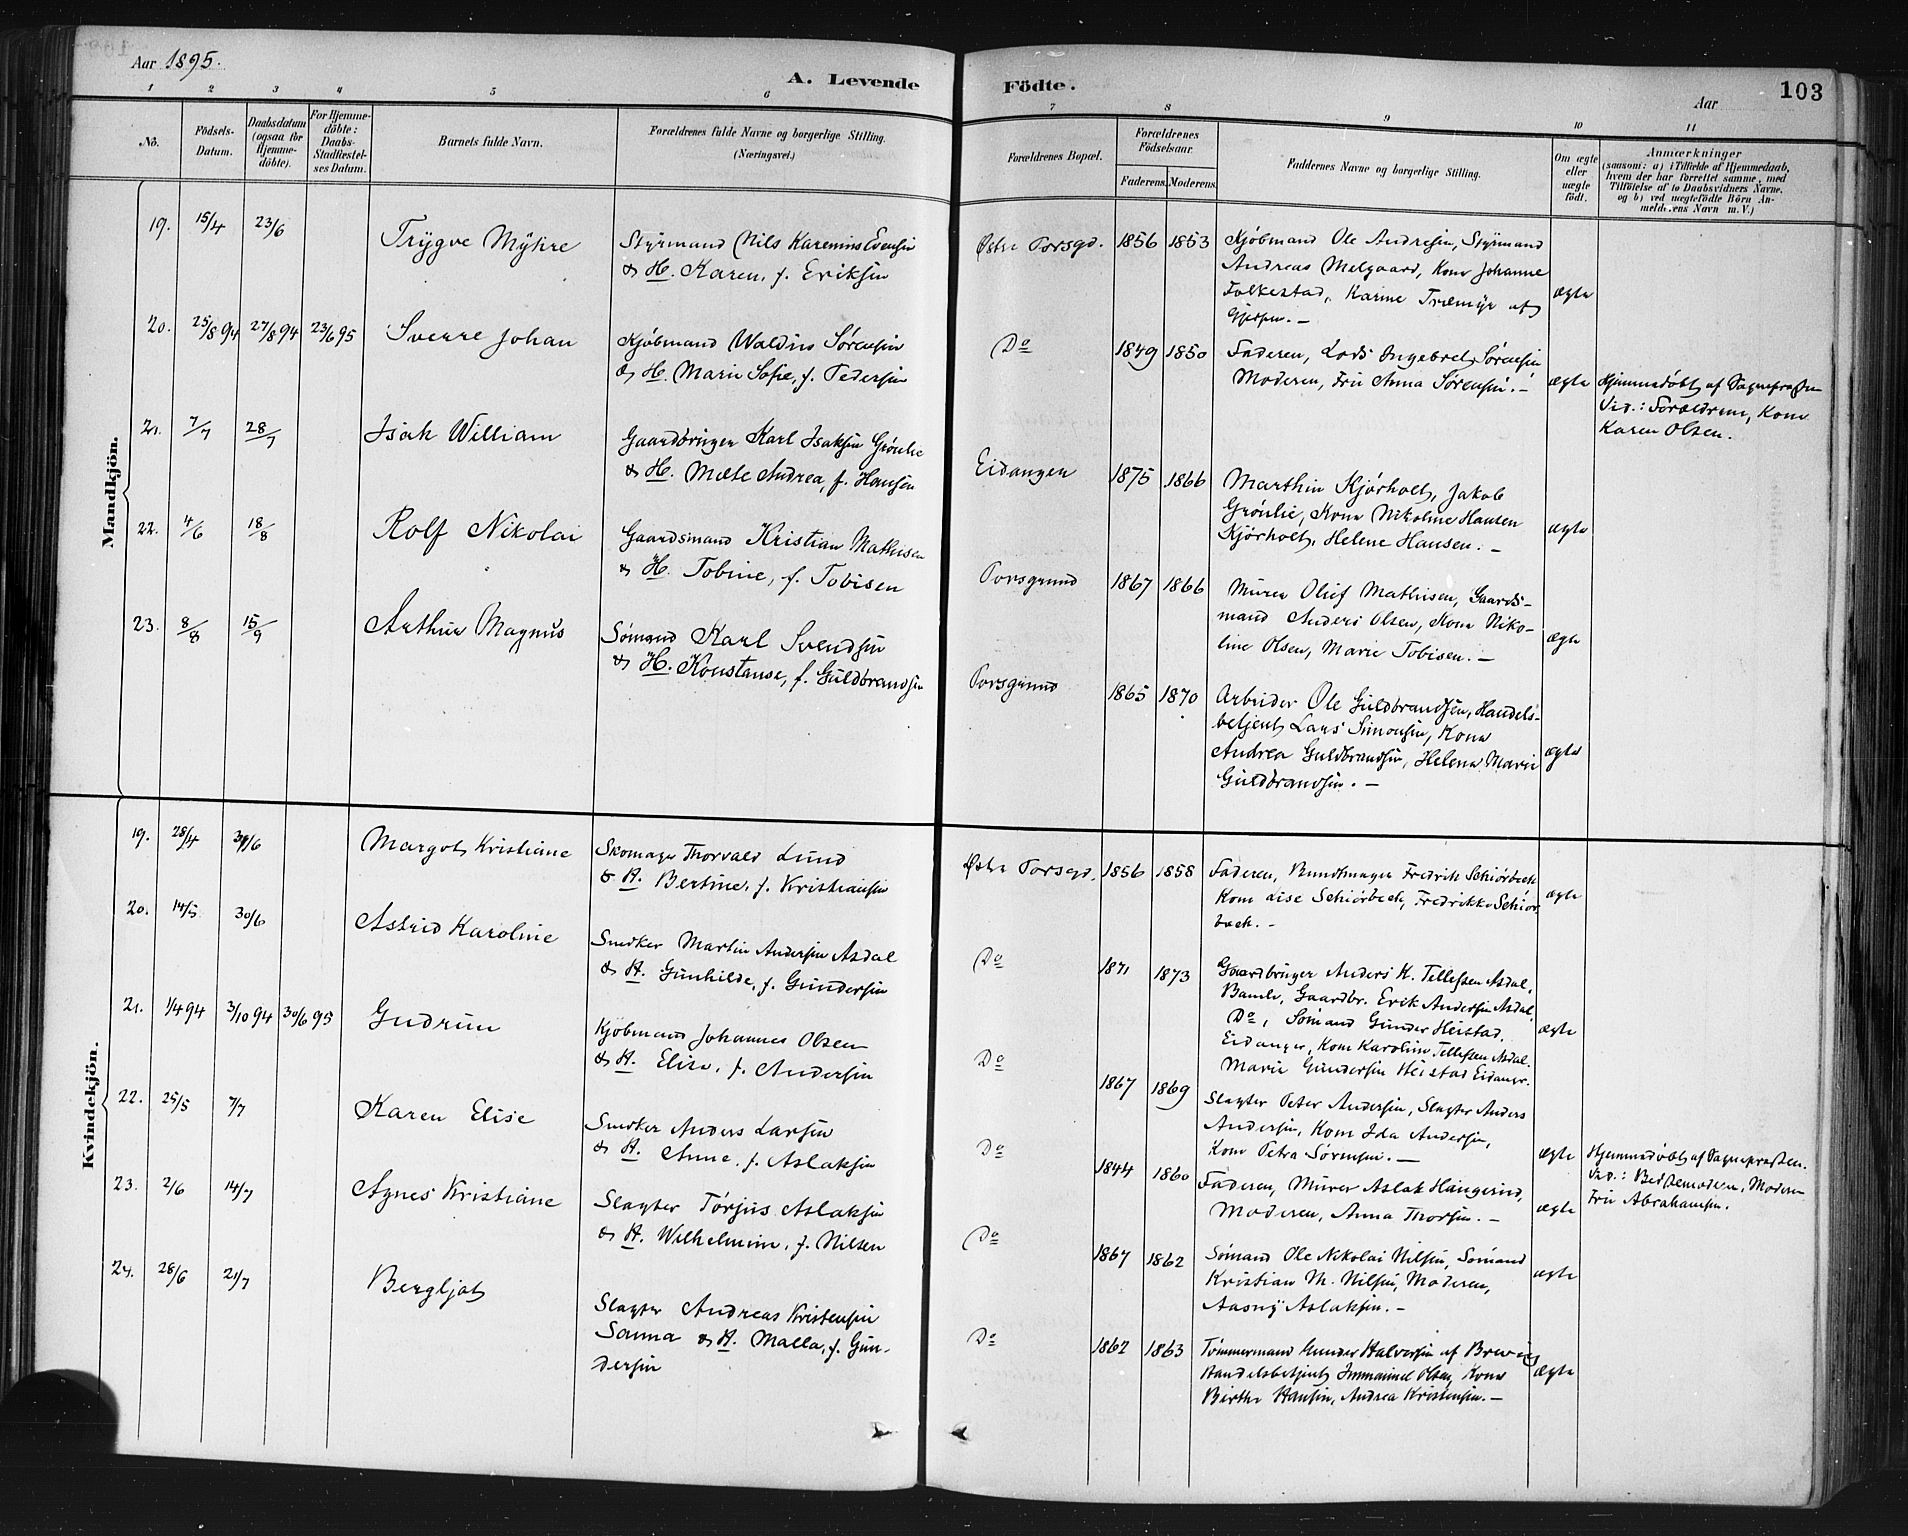 Aar 1895.
A. Levende Födte.
Aar
103
1 2 3 4 5 6 7 8 9 10 11
No.
Födsels-Datum.
Daabsdatum (ogsaa for Hjemme-döbte).
For Hjemme-döbte: Daabs-Stadfæstel-ses Datum.
Barnets fulde Navn.
Forældrenes fulde Navne og borgerlige Stilling.
(Næringsvei.)
Forældrenes Bopæl.
Forældrenes Födselsaar.
Faderens. Moderens.
Faddernes Navne og borgerlige Stilling.
Om ægte eller uægte födt.
Anmærkninger
(saasom: a) i Tilfælde af Hjemmedaab,
hvem der har forrettet samme, med
Tilföielse af to Daabsvidners Navne.
og b) ved uægtefödte Börn An-
melderens Navn m. V.)
Mandkjön.
19. 15/4 23/6 Trygve Myhre
Styrmand Nils Karenius Evensen
& H. Karen, f. Eriksen
Østre Porsgd. 1856 1853
Kjøbmand Ole Andresen, Styrmand
Andreas Melgaard, Kone Johanne
Folkestad, Karine Træmyr af
Gjerpen. —
ægte
20. 25/8 94 27/8 94 23/6 95 Sverre Johan
Kjøbmand Waldus Sørensen
& H. Marie Sofie, f. Pedersen
Do 1849 1850
Faderen, Lods Ingebret Sørensen
Moderen, Fru Anna Sørensen. —
ægte
Hjemmedøbt af Sognepræsten
Vid.: Forældrene, Kone
Karen Olsen.
21. 7/7 28/7 Isak William
Gaardbruger Karl Isaksen Grønlie
& H. Mæte Andrea, f. Hansen
Eidanger 1875 1866
Marthin Kjørholt, Jakob
Grønlie, Kone Nikoline Hansen
Kjørholt, Helene Hansen. —
ægte
22. 4/6 18/8 Rolf Nikolai
Gaardsmand Kristian Mathisen
& H. Tobine, f. Tobisen
Porsgrund 1867 1866
Murer Oluf Mathisen, Gaards-
mand Anders Olsen, Kone Niko-
line Olsen, Marie Tobisen. —
ægte
23. 8/8 15/9 Arthur Magnus
Sømand Karl Svendsen
& H. Konstanse, f. Guldbrandsen
Porsgrund 1865 1870
Arbeider Ole Guldbrandsen, Handels-
betjent Lars Simonsen, Kone
Andrea Guldbrandsen, Helena Marie
Guldbrandsen. —
ægte
Kvindekjön.
19. 28/4 Margot Kristiane
Skomager Thorvald Lund
& H. Bertine, f. Kristiansen
Østre Porsgd. 1856 1858
Faderen, Bundtmager Fredrik Schiørbeck
Kone Lise Schiørbeck, Fredrikke Schiør-
beck. —
ægte
20. 14/5 30/6 Astrid Karoline
Snedker Martin Andersen Asdal
& H. Gunhilde, f. Gundersen
Do 1871 1873
Gaardbruger Anders K. Tellefsen Asdal,
Bamle, Gaardbr. Erik Andersen Asdal,
Do, Sømand Gunder Heistad,
Eidanger, Kone Karoline Tellefsen Asdal.
Marie Gundersen Heistad Eidangr.
ægte
21. 1/4 94 3/10 94 30/6 95 Gudrun
Kjøbmand Johannes Olsen
& H. Elise, f. Andersen
Do 1867 1869
Slagter Peter Andersen, Slagter Anders
Andersen, Kone Ida Andersen,
Kone Petra Sørensen. —
ægte
Hjemmedøbt af Sognepræsten.
Vid.: Bedstemoderen, Moderen
Fru Abrahamsen.
22. 25/5 7/7 Karen Elise
Snedker Anders Larsen
& H. Anne, f. Aslaksen
Do 1844 1860
Faderen, Murer Aslak
Moderen, Anna Thorsen. —
ægte
23. 2/6 14/7 Agnes Kristiane
Slagter Torjus Aslaksen
& H. Wilhelmine, f. Nilsen
Do 1867 1862
Sømand Ole Nikolai Nilsen, Sømand
Kristian M. Nilsen, Moderen,
Aasny Aslaksen. —
ægte
24. 28/6 21/7 Bergljot
Slagter Andreas Kristensen
Sanna & H. Malla, f. Gun-
dersen
Do 1862 1863
Tømmermand Gunder Halvorsen af Brevig
Handelsbetjent Immanuel Olsen, Kone
Birthe Hansen, Andrea Kristensen. —
ægte